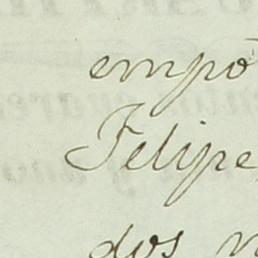 empō
Felipe
dos